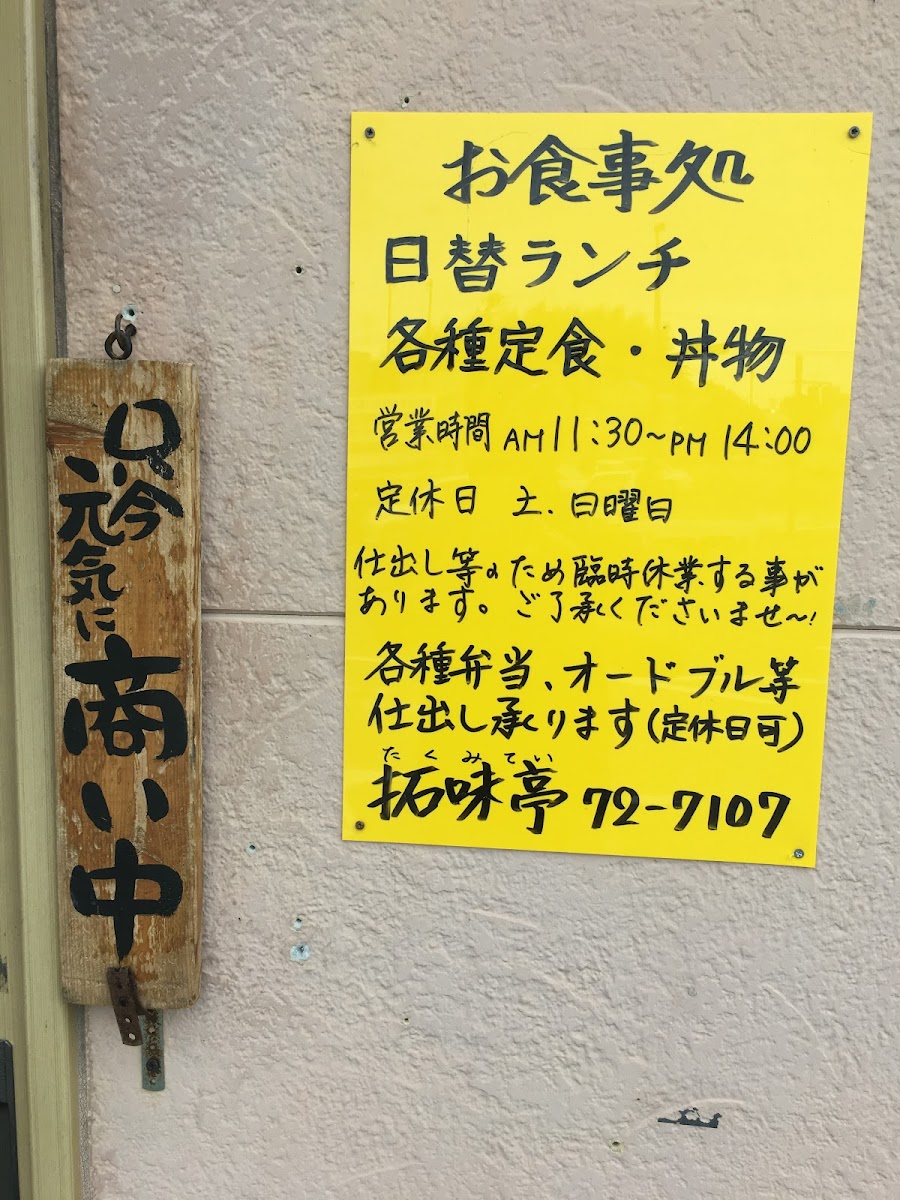 お食事処
日替ランチ
各種定食・丼物
営業時間 AM11:30~PM14:00
定休日 土、日曜日
仕出し等のため臨時休業する事が
あります。ご了承くださいませ〜!
各種弁当、オードブル等
仕出し承ります(定休日可)
たくみてい
拓味亭 72-7107
只今
元気に
商い中